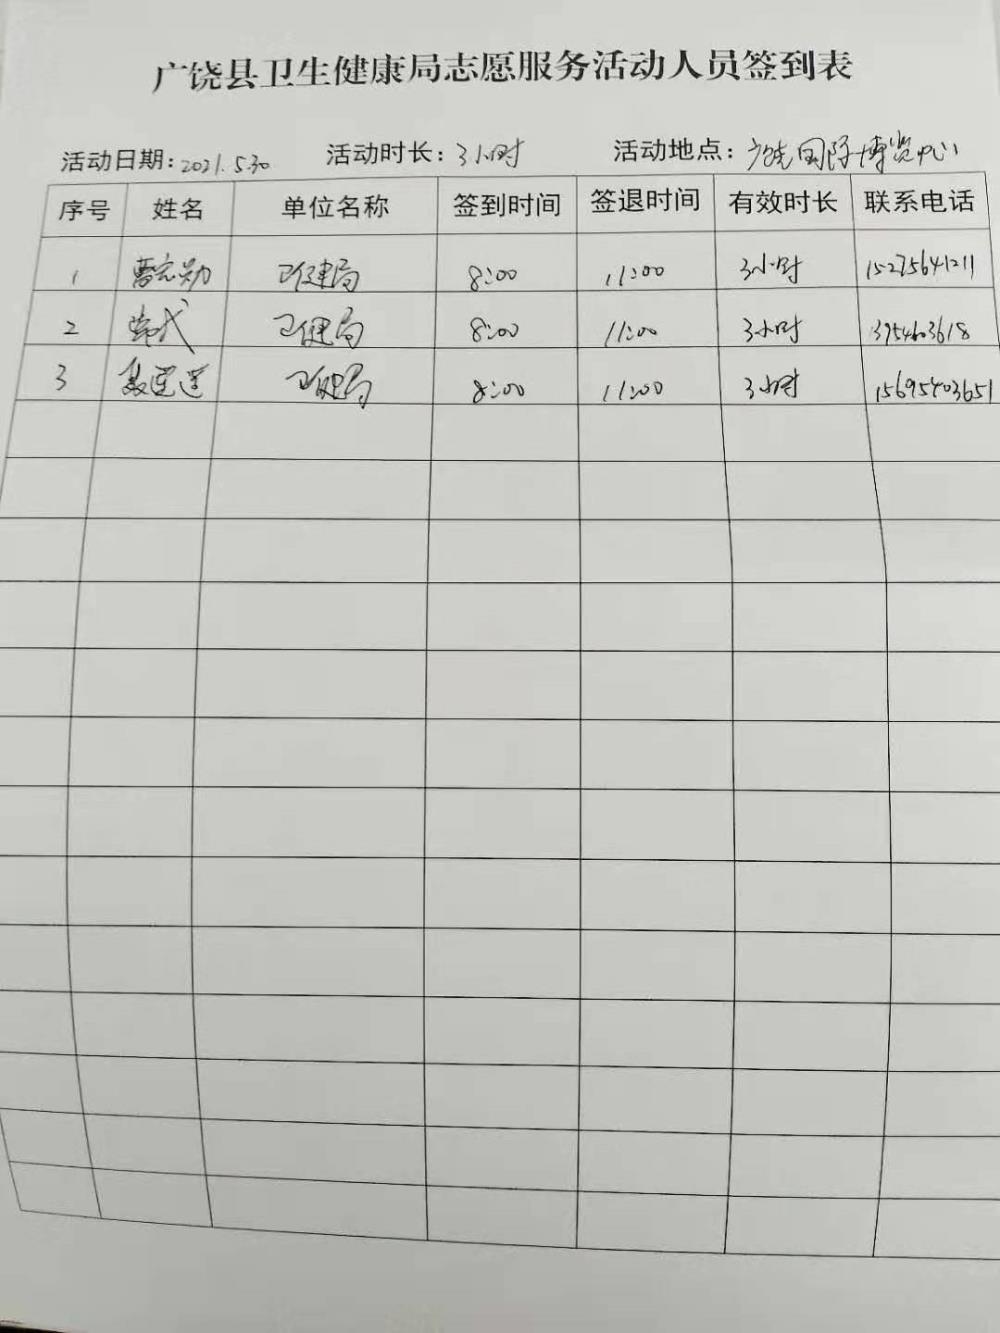 广饶县卫生健康局志愿服务活动人员签到表
活动日期：2021.5.30 活动时长：3小时 活动地点：广饶国际博览中心
序号 姓名 单位名称 签到时间 签退时间 有效时长 联系电话
1 卫健局 8:00 11:00 3小时 15275641211
2 卫健局 8:00 11:00 3小时
3 卫健局 8:00 11:00 3小时 15695403651